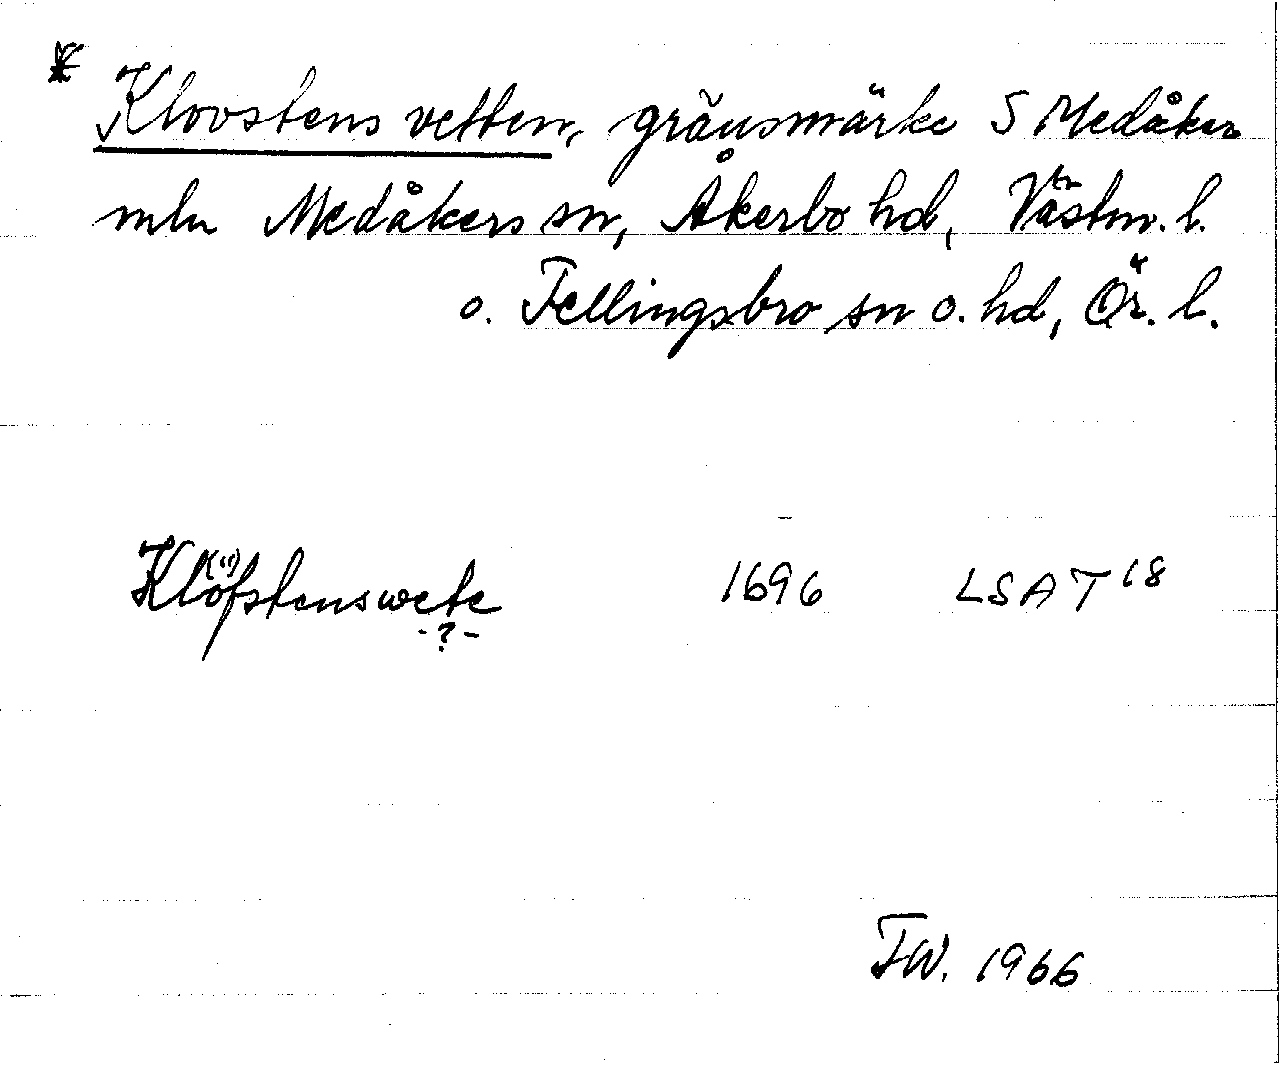 * Klovstensvetten, gränsmärke S Medåker
mln Medåkers sn, Åkerbo hd, Västm. l.
o. Fellingsbro sn o. hd, Ör. l.
Klöfstenswete 1696 LSA T 18
(")
-?-
FW. 1966